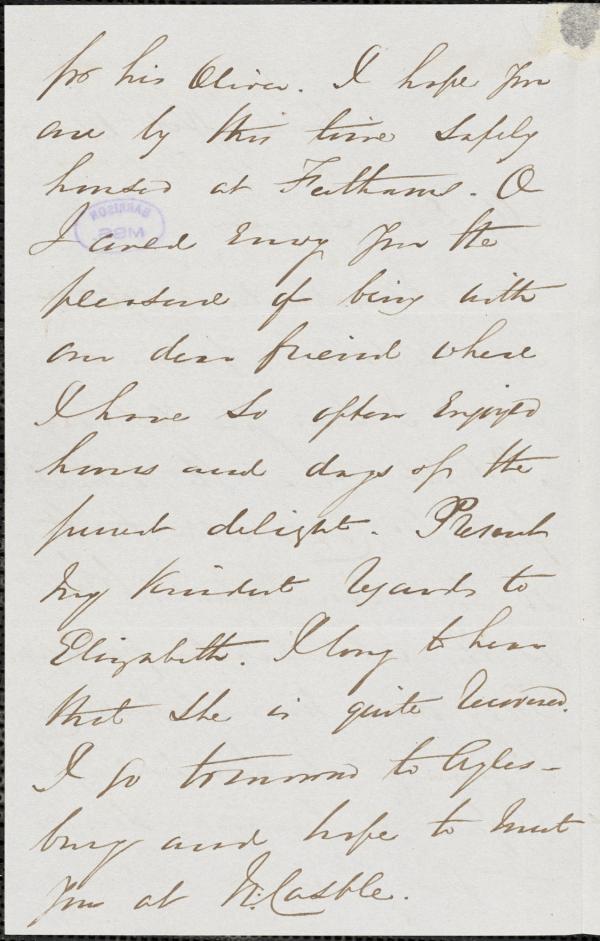 for his Oliver. I hope you
are by this time safely
housed at Felthams. O
I could envy you the
pleasure of being with
our dear friend where
I have so often enjoyed
hours and days of the
purest delight. Present
my kindest regards to
Elizabeth. I long to hear
that she is quite recovered.
I go tomorrow to Ayles-
bury and hope to meet
you at N. Castle.